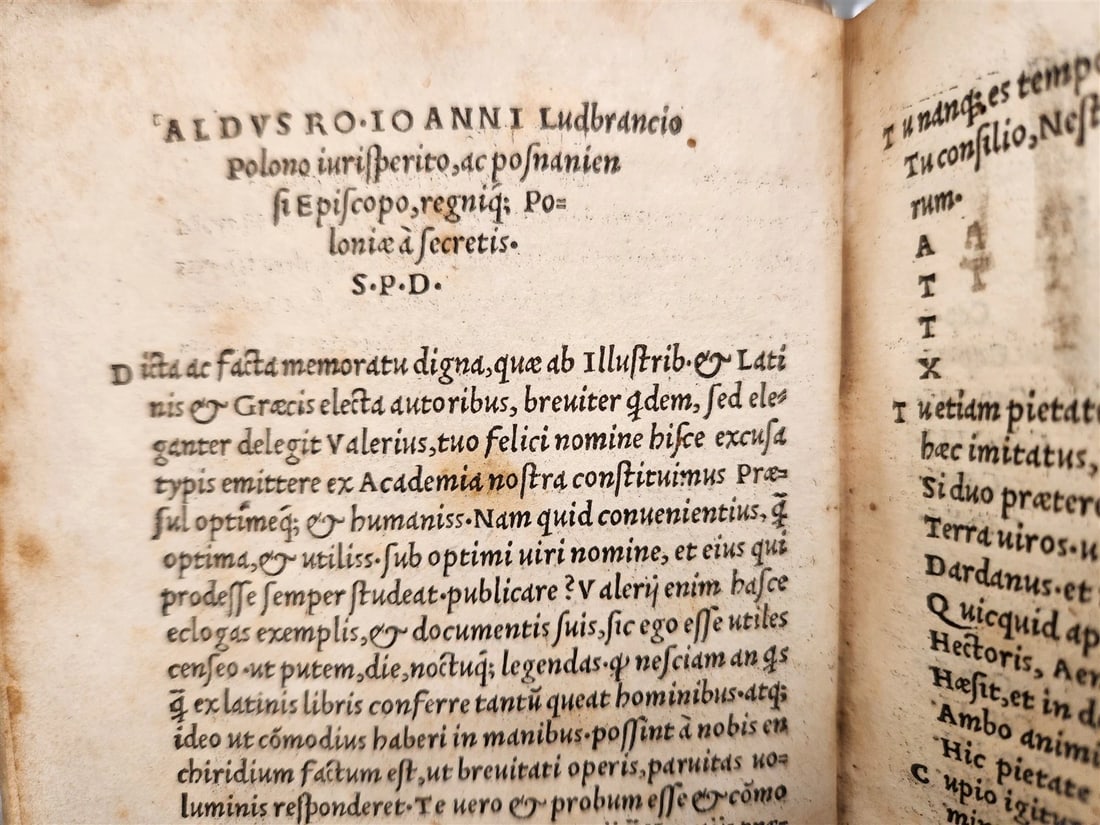 ALDVS RO·IOANNI Ludbrancio
Polono iurisperito,ac posnanien
si Episcopo,regniq́; Po=
loniæ à secretis·
S·P·D·
Dicta ac facta memoratu digna,quæ ab Illustrib·& Lati
nis & Græcis electa autoribus, breuiter q̇dem, sed ele=
ganter delegit Valerius,tuo felici nomine hisce excusa
typis emittere ex Academia nostra constituimus Præ=
sul optimeq́; & humaniss·Nam quid conuenientius, q̃
optima,& utiliss·sub optimi uiri nomine, et eius qui
prodesse semper studeat·publicare ?Valerij enim hasce
eclogas exemplis,& documentis suis,sic ego esse utiles
censeo·ut putem,die,noctuq́; legendas·ꝙ nesciam an q̇s
q̃ ex latinis libris conferre tantũ queat hominibus·atq;
ideo ut cõmodius haberi in manibus·possint à nobis en
chiridium factum est,ut breuitati operis,paruitas uo=
luminis responderet·Te uero & probum esse & cõmo
Tu nanq; es tempo
Tu consilio,Nest
rum·
A
T
T
X
Tu etiam pietat
hæc imitatus,
Si duo præter
Terra uiros·u
Dardanus·et
Quicquid ap
Hectoris, Aen
Hæsit,et in d
Ambo animi
Hic pietate
Cupio igitur
min